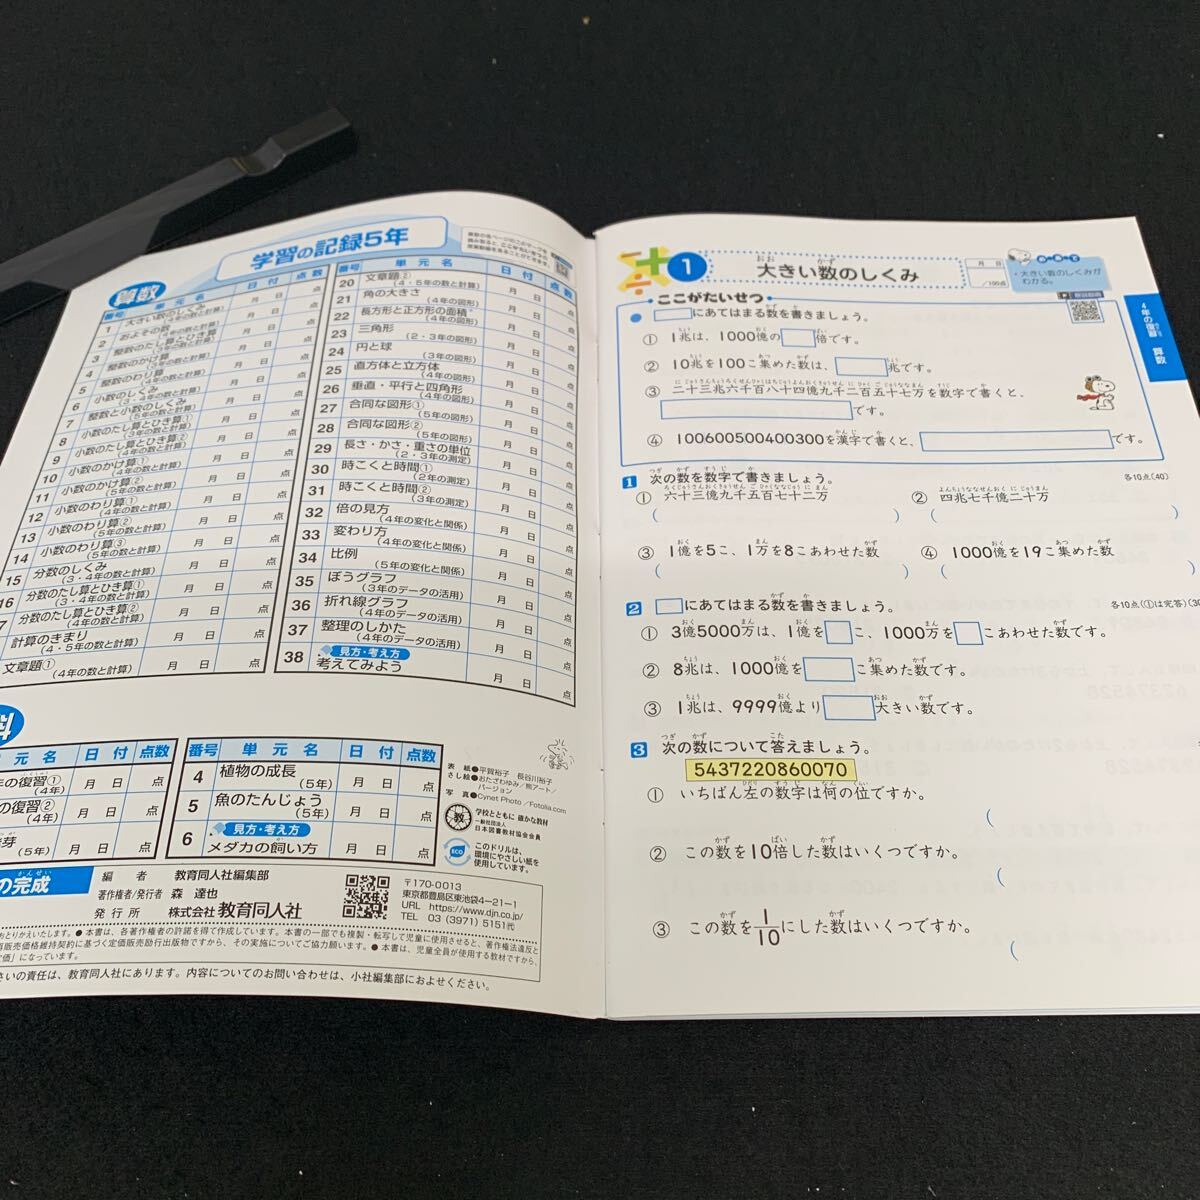 学習の記録5年
算数
番号 単元名 月日 点数
1 大きい数のしくみ (4年の数と計算) 月 日 点
2 およその数 (4年の数と計算) 月 日 点
3 整数のたし算とひき算 月 日 点
4 整数のかけ算 月 日 点
5 整数のわり算 月 日 点
6 小数のしくみ 月 日 点
7 整数と小数のしくみ (5年の数と計算) 月 日 点
8 小数のたし算とひき算① (3年の数と計算) 月 日 点
9 小数のたし算とひき算② (4年の数と計算) 月 日 点
10 小数のかけ算① (4年の数と計算) 月 日 点
11 小数のかけ算② (5年の数と計算) 月 日 点
12 小数のわり算① (4年の数と計算) 月 日 点
13 小数のわり算② (5年の数と計算) 月 日 点
14 小数のわり算③ (5年の数と計算) 月 日 点
15 分数のしくみ (3・4年の数と計算) 月 日 点
16 分数のたし算とひき算① (3・4年の数と計算) 月 日 点
7 分数のたし算とひき算② (4年の数と計算) 月 日 点
計算のきまり (4・5年の数と計算) 月 日 点
文章題① (4年の数と計算) 月 日 点
番号 単元名 日付 点数
20 文章題② (4・5年の数と計算) 月 日 点
21 角の大きさ (4年の図形) 月 日 点
22 長方形と正方形の面積 (4年の図形) 月 日 点
23 三角形 (2・3年の図形) 月 日 点
24 円と球 (3年の図形) 月 日 点
25 直方体と立方体 (4年の図形) 月 日 点
26 垂直・平行と四角形 (4年の図形) 月 日 点
27 合同な図形① (5年の図形) 月 日 点
28 合同な図形② (5年の図形) 月 日 点
29 長さ・かさ・重さの単位 (2・3年の測定) 月 日 点
30 時こくと時間① (2年の測定) 月 日 点
31 時こくと時間② (3年の測定) 月 日 点
32 倍の見方 (4年の変化と関係) 月 日 点
33 変わり方 (4年の変化と関係) 月 日 点
34 比例 (5年の変化と関係) 月 日 点
35 ぼうグラフ (3年のデータの活用) 月 日 点
36 折れ線グラフ (4年のデータの活用) 月 日 点
37 整理のしかた (4年のデータの活用) 月 日 点
38 見方・考え方 考えてみよう 月 日 点
科
元名 日付 点数
年の復習① (4年) 月 日 点
の復習② (4年) 月 日 点
発芽 (5年) 月 日 点
番号 単元名 日付 点数
4 植物の成長 (5年) 月 日 点
5 魚のたんじょう (5年) 月 日 点
6 見方・考え方 メダカの飼い方 月 日 点
表紙●平賀裕子 長谷川裕子
さし絵●おたざわゆみ/熊アート/
バージョン
写真●Cynet Photo/Fotolia.com
教
学校とともに 確かな教材
一般社団法人
日本図書教材協会会員
ECO
このドリルは、
環境にやさしい紙を
使用しています。
の完成
編者 教育同人社編集部
著作権者/発行者 森 達也
発行所 株式会社 教育同人社
〒170-0013
東京都豊島区東池袋4-21-1
URL https://www.djn.co.jp/
TEL 03 (3971) 5151代
おとりかえいたします。●本書は、各著作権者の許諾を得て作成しています。本書の一部でも複製・転写して児童に使用させると、著作権法違反と
再販売価格維持契約に基づく定価販売励行出版物ですから、その実施についてご協力願います。●本書は、児童全員が使用する教材ですから、
定価」になっています。
さいの責任は、教育同人社にあります。内容についてのお問い合わせは、小社編集部におよせください。
1 大きい数のしくみ
月 日
/100点
めあて
・大きい数のしくみが
わかる。
解説動画
4年の復習 算数
ここがたいせつ
● □にあてはまる数を書きましょう。
① 1兆は、1000億の□倍です。
② 10兆を100こ集めた数は、□兆です。
③ 二十三兆六千百八十四億九千二百五十七万を数字で書くと、
□です。
④ 100600500400300を漢字で書くと、□です。
1 次の数を数字で書きましょう。 各10点(40)
① 六十三億九千五百七十二万 ② 四兆七千億二十万
( ) ( )
③ 1億を5こ、1万を8こあわせた数 ④ 1000億を19こ集めた数
( ) ( )
2 □にあてはまる数を書きましょう。 各10点(①は完答)(30
① 3億5000万は、1億を□こ、1000万を□こあわせた数です。
② 8兆は、1000億を□こ集めた数です。
③ 1兆は、9999億より□大きい数です。
3 次の数について答えましょう。
5437220860070
① いちばん左の数字は何の位ですか。
(
② この数を10倍した数はいくつですか。
(
③ この数を1/10にした数はいくつですか。
(